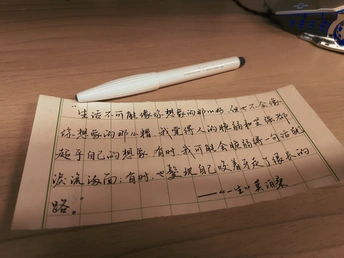 “生活不可能像你想象的那么好，但也不会像
你想象的那么糟。我觉得人的脆弱和坚强都
超乎自己的想象。有时，我可能会脆弱得一句话就
泪流满面；有时，也发现自己咬着牙走了很长的
路。”
——莫泊桑